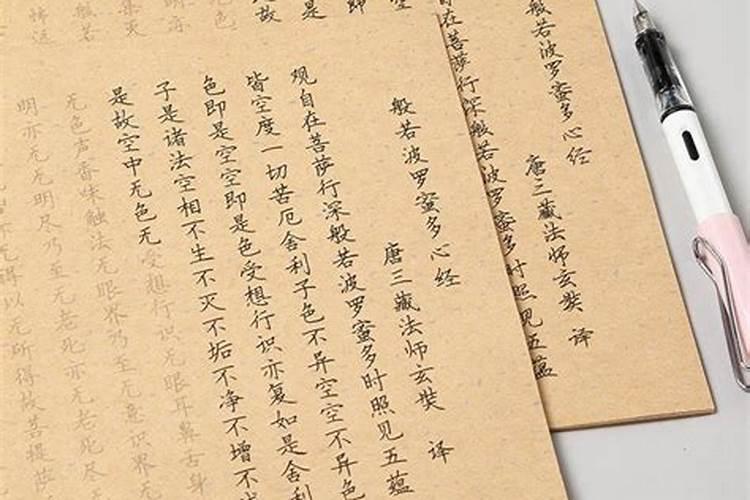 般若波罗蜜多心经
唐三藏法师玄奘 译
自在菩萨行深般若波罗蜜多时照见五蕴
空
即
是
故
般若波罗蜜多心经
唐三藏法师玄奘 译
观自在菩萨行深般若波罗蜜多时照见五蕴
皆空度一切苦厄舍利子色不异空空不异色
色即是空空即是色受想行识亦复如是舍利
子是诸法空相不生不灭不垢不净不增不
是故空中无色无受想行识无眼耳鼻舌身
无色声香味触法无眼界乃至无意识界无
明亦无无明尽乃至无老死亦无老死尽无
得以无所得故菩提萨